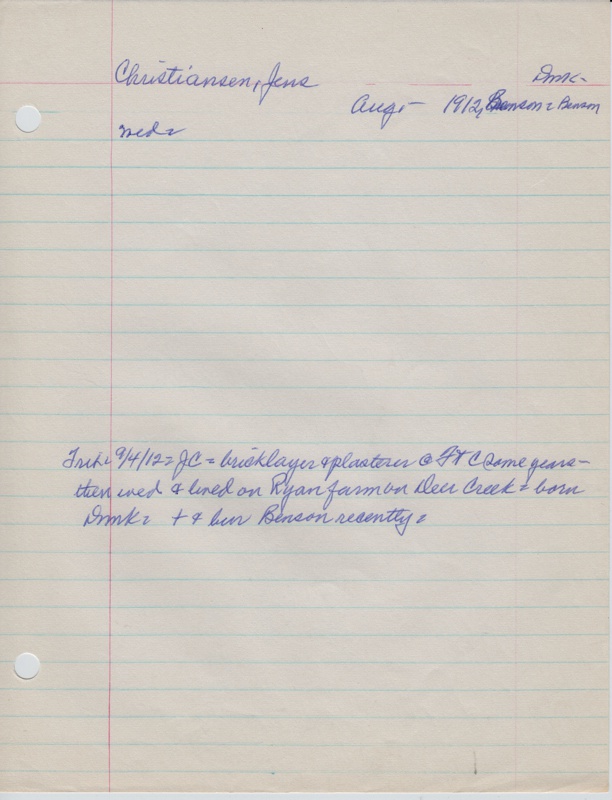 Christiansen, Jens Dmk-
Aug - 1912, Benson = Benson
wed=
Trib= 9/4/12= JC= bricklayer & plasterer @ Ft C some years-
then wed & lived on Ryan farm on Deer Creek= born
Dnmk= + & bur Benson recently=